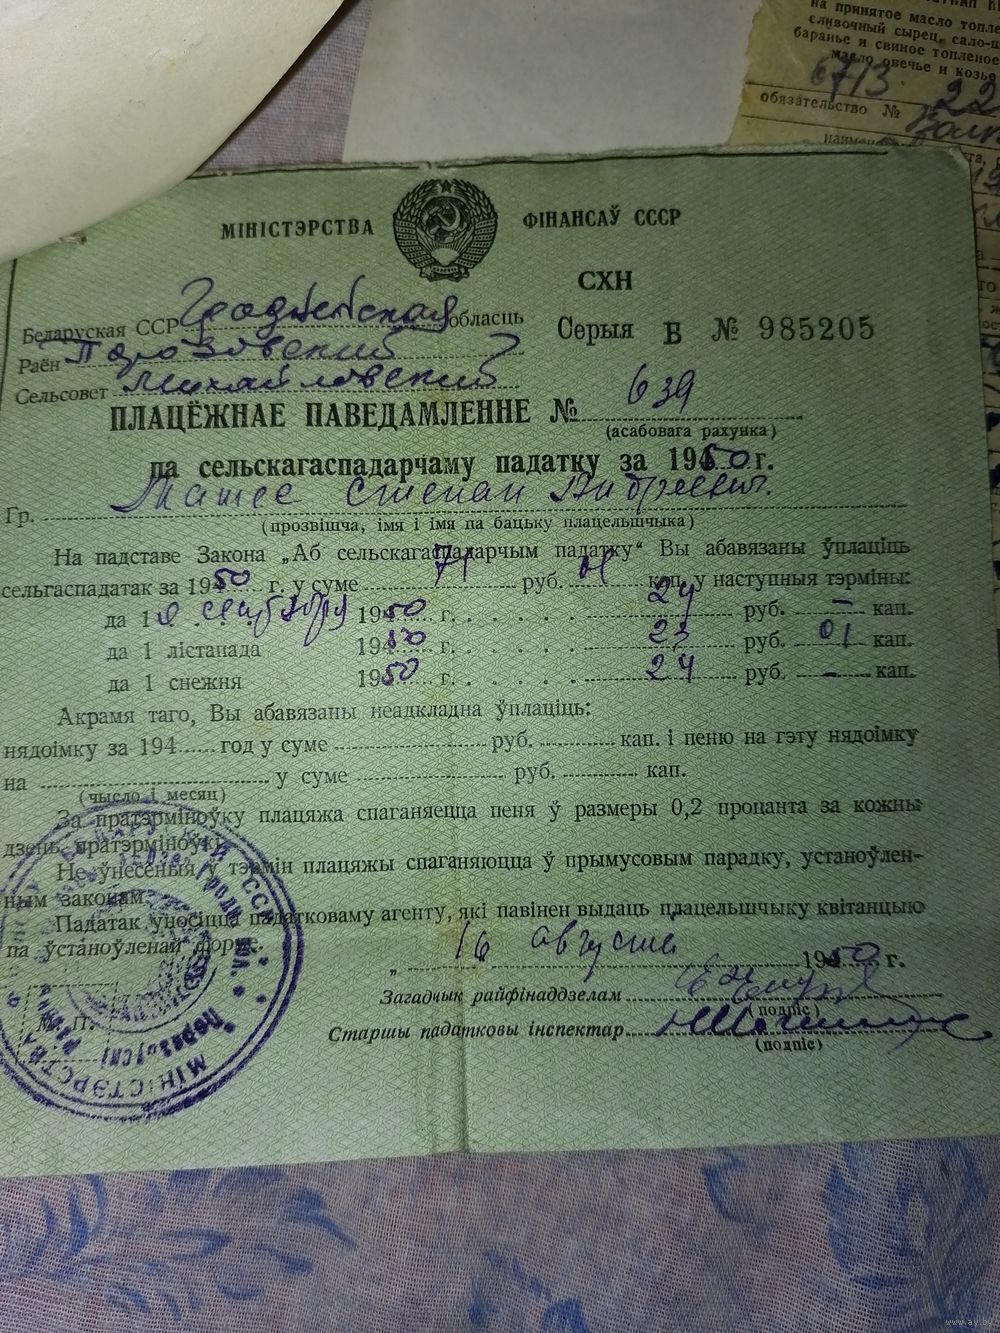 на принятое масло топле
сливочный сырец, сало-ш
баранье и свиное топленое
масло овечье и козье
6713
обязательство № 22
МІНІСТЭРСТВА ФІНАНСАЎ СССР
СХН
Беларуская ССР Гродненская область
Серыя Б № 985205
Раён Порозовский
Сельсовет Михайловский
ПЛАЦЁЖНАЕ ПАВЕДАМЛЕННЕ № 639
(асабовага рахунка)
па сельскагаспадарчаму падатку за 1950 г.
Гр. Степан Андреевич.
(прозвішча, імя і імя па бацьку плацельшчыка)
На падставе Закона „Аб сельскагаспадарчым падатку“ Вы абавязаны ўплаціць
сельгаспадатак за 1950 г. у суме 71 руб. 01 кап. у наступныя тэрміны:
да 1 сентября 1950 г. 24 руб. — кап.
да 1 лістапада 1950 г. 23 руб. 01 кап.
да 1 снежня 1950 г. 24 руб. — кап.
Акрамя таго, Вы абавязаны неадкладна ўплаціць:
нядоімку за 194 год у суме руб. кап. і пеню на гэту нядоімку
на у суме руб. кап.
(чысло і месяц)
За пратэрміноўку плацяжа спаганяецца пеня ў размеры 0,2 процанта за кожны
дзень пратэрміноўкі.
Не ўнесеныя ў тэрмін плацяжы спаганяюцца ў прымусовым парадку, устаноўлен-
ным законам.
Падатак уносіцца падатковаму агенту, які павінен выдаць плацельшчыку квітанцыю
па ўстаноўленай форме.
„ 16 августа 1950 г.
Загадчык райфінаддзелам
(подпіс)
М. П.
Старшы падатковы інспектар
(подпіс)
МІНІСТЭРСТВА
www.ay.by